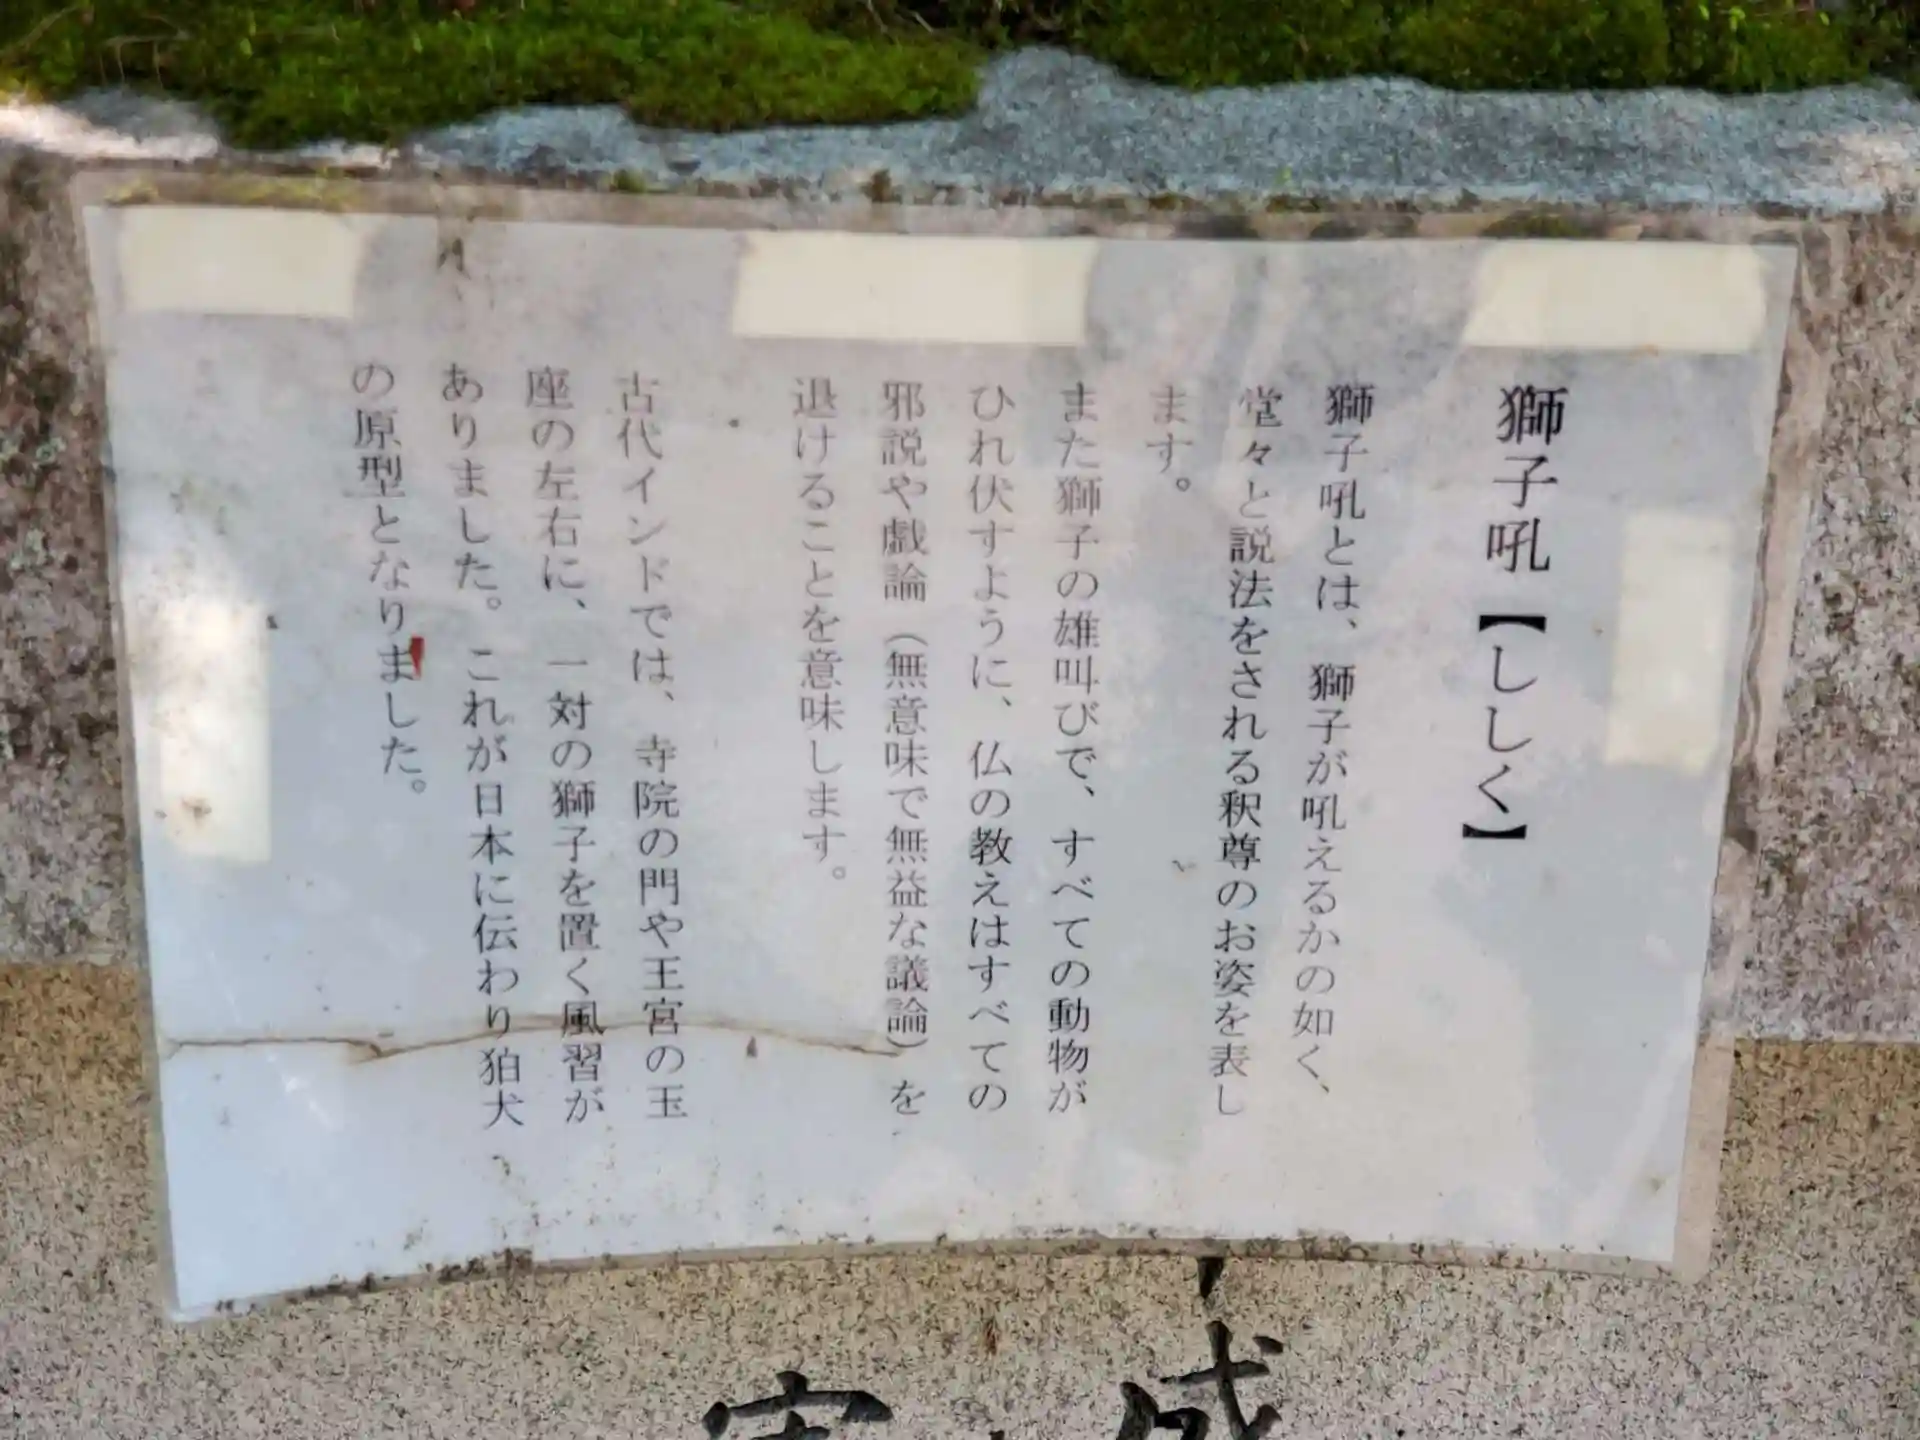 獅子吼【ししく】
獅子吼とは、獅子が吼えるかの如く、
堂々と説法をされる釈尊のお姿を表し
ます。
また獅子の雄叫びで、すべての動物が
ひれ伏すように、仏の教えはすべての
邪説や戯論（無意味で無益な議論）を
退けることを意味します。
古代インドでは、寺院の門や王宮の玉
座の左右に、一対の獅子を置く風習が
ありました。これが日本に伝わり狛犬
の原型となりました。